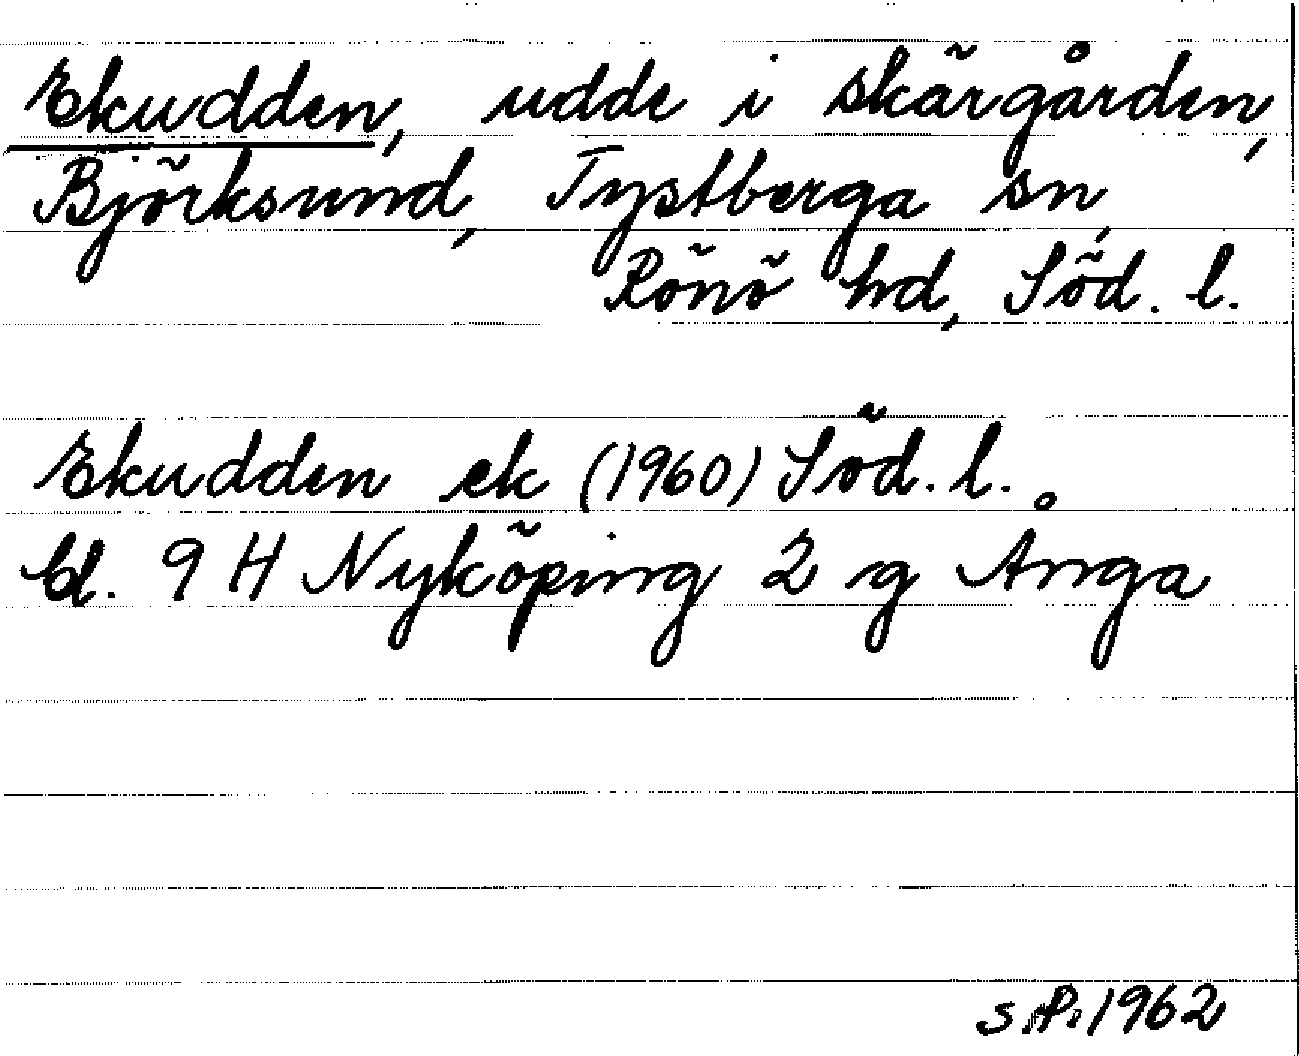 Ekudden, udde i skärgården,
Björksund, Tystberga sn,
Rönö hd, Söd. l.
Ekudden ek (1960) Söd. l.
bl. 9 H Nyköping 2 g Ånga
S.P. 1962